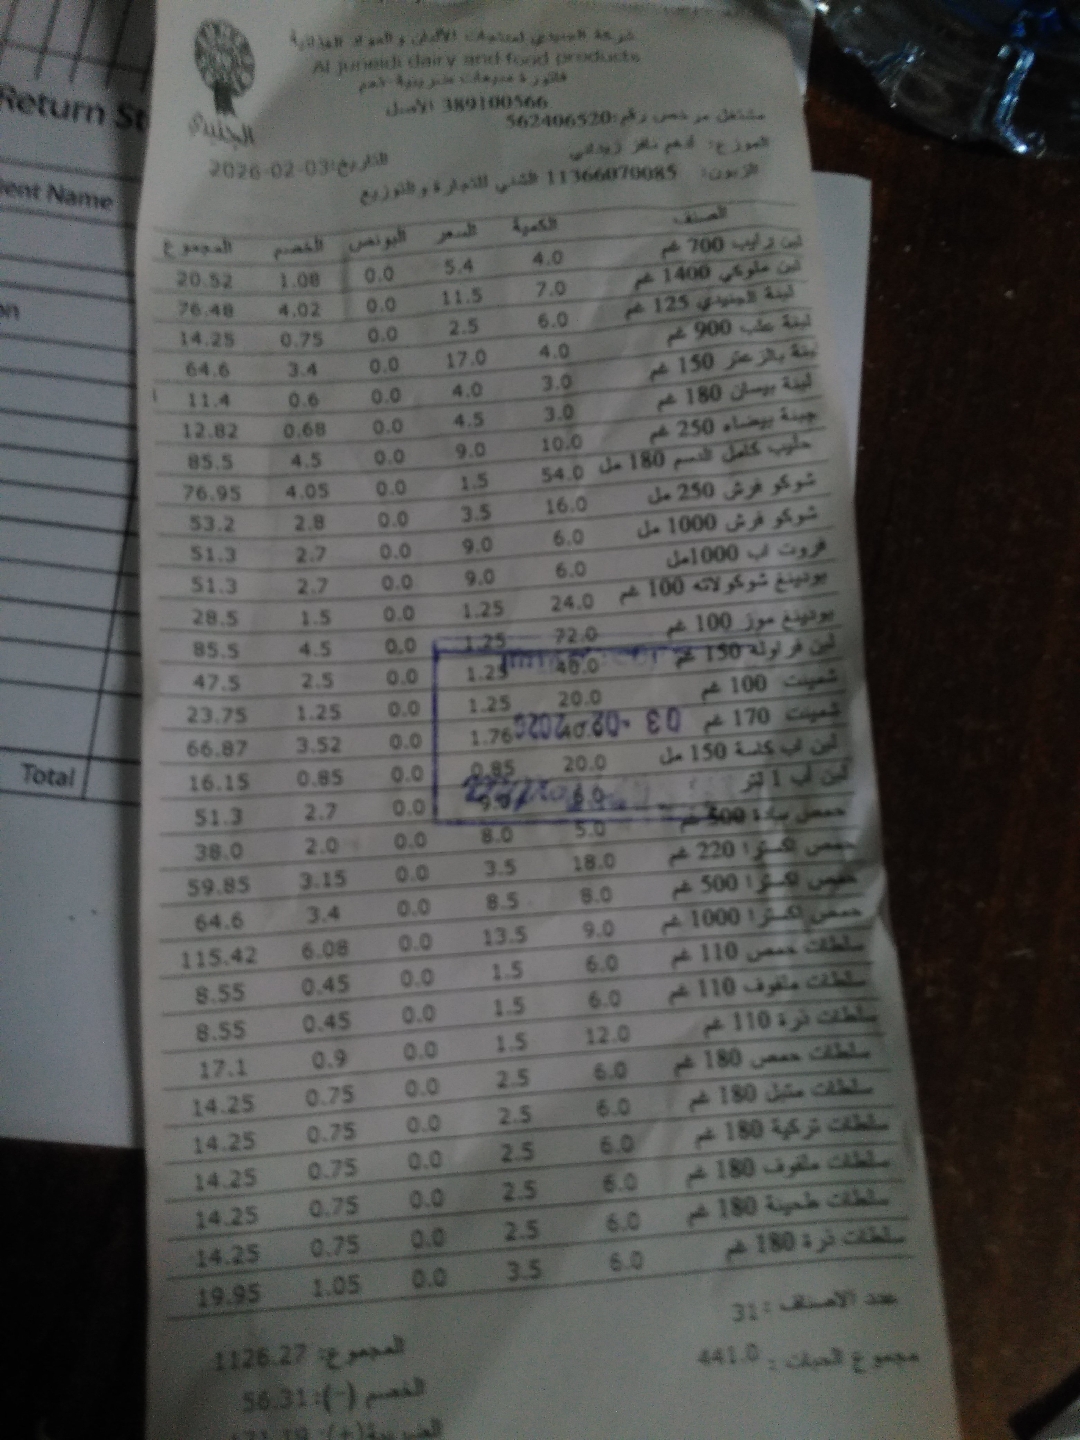 شركة الجنيدي لمنتجات الألبان و المواد الغذائية
Al juneidi dairy and food products
فاتورة مبيعات ضريبية
389100566 الأصل
مشتغل مرخص رقم:562406520
الجنيدي
الموزع: أدهم زيداني
التاريخ:2026-02-03
الزبون: 11366070085 للتجارة والتوزيع
الصنف الكمية السعر البونص الخصم المجموع
لبن رايب 700 غم 4.0 5.4 0.0 1.08 20.52
لبن ملوكي 1400 غم 7.0 11.5 0.0 4.02 76.48
لبنة الجنيدي 125 غم 6.0 2.5 0.0 0.75 14.25
لبنة علب 900 غم 4.0 17.0 0.0 3.4 64.6
لبنة بالزعتر 150 غم 3.0 4.0 0.0 0.6 11.4
لبنة بيسان 180 غم 3.0 4.5 0.0 0.68 12.82
جبنة بيضاء 250 غم 10.0 9.0 0.0 4.5 85.5
حليب كامل الدسم 180 مل 54.0 1.5 0.0 4.05 76.95
شوكو فرش 250 مل 16.0 3.5 0.0 2.8 53.2
شوكو فرش 1000 مل 6.0 9.0 0.0 2.7 51.3
فروت اب 1000مل 6.0 9.0 0.0 2.7 51.3
بودينغ شوكولاته 100 غم 24.0 1.25 0.0 1.5 28.5
بودينغ موز 100 غم 72.0 1.25 0.0 4.5 85.5
لبن فراوله 150 غم 40.0 1.25 0.0 2.5 47.5
شمينت 100 غم 20.0 1.25 0.0 1.25 23.75
شمينت 170 غم 40.0 1.76 0.0 3.52 66.87
لبن اب كاسة 150 مل 20.0 0.85 0.0 0.85 16.15
لبن اب 1 لتر 6.0 9.0 0.0 2.7 51.3
حمص سادة 500 غم 5.0 8.0 0.0 2.0 38.0
حمص اكسترا 220 غم 18.0 3.5 0.0 3.15 59.85
حمص اكسترا 500 غم 8.0 8.5 0.0 3.4 64.6
حمص اكسترا 1000 غم 9.0 13.5 0.0 6.08 115.42
سلطات حمص 110 غم 6.0 1.5 0.0 0.45 8.55
سلطات ملفوف 110 غم 6.0 1.5 0.0 0.45 8.55
سلطات ذرة 110 غم 12.0 1.5 0.0 0.9 17.1
سلطات حمص 180 غم 6.0 2.5 0.0 0.75 14.25
سلطات متبل 180 غم 6.0 2.5 0.0 0.75 14.25
سلطات تركية 180 غم 6.0 2.5 0.0 0.75 14.25
سلطات ملفوف 180 غم 6.0 2.5 0.0 0.75 14.25
سلطات طحينة 180 غم 6.0 2.5 0.0 0.75 14.25
سلطات ذرة 180 غم 6.0 3.5 0.0 1.05 19.95
03 -02- 2026
عدد الاصناف :31
مجموع الحبات : 441.0
المجموع: 1126.27
الخصم (-): 56.31
الضريبة(+):
Return St
ent Name
on
Total